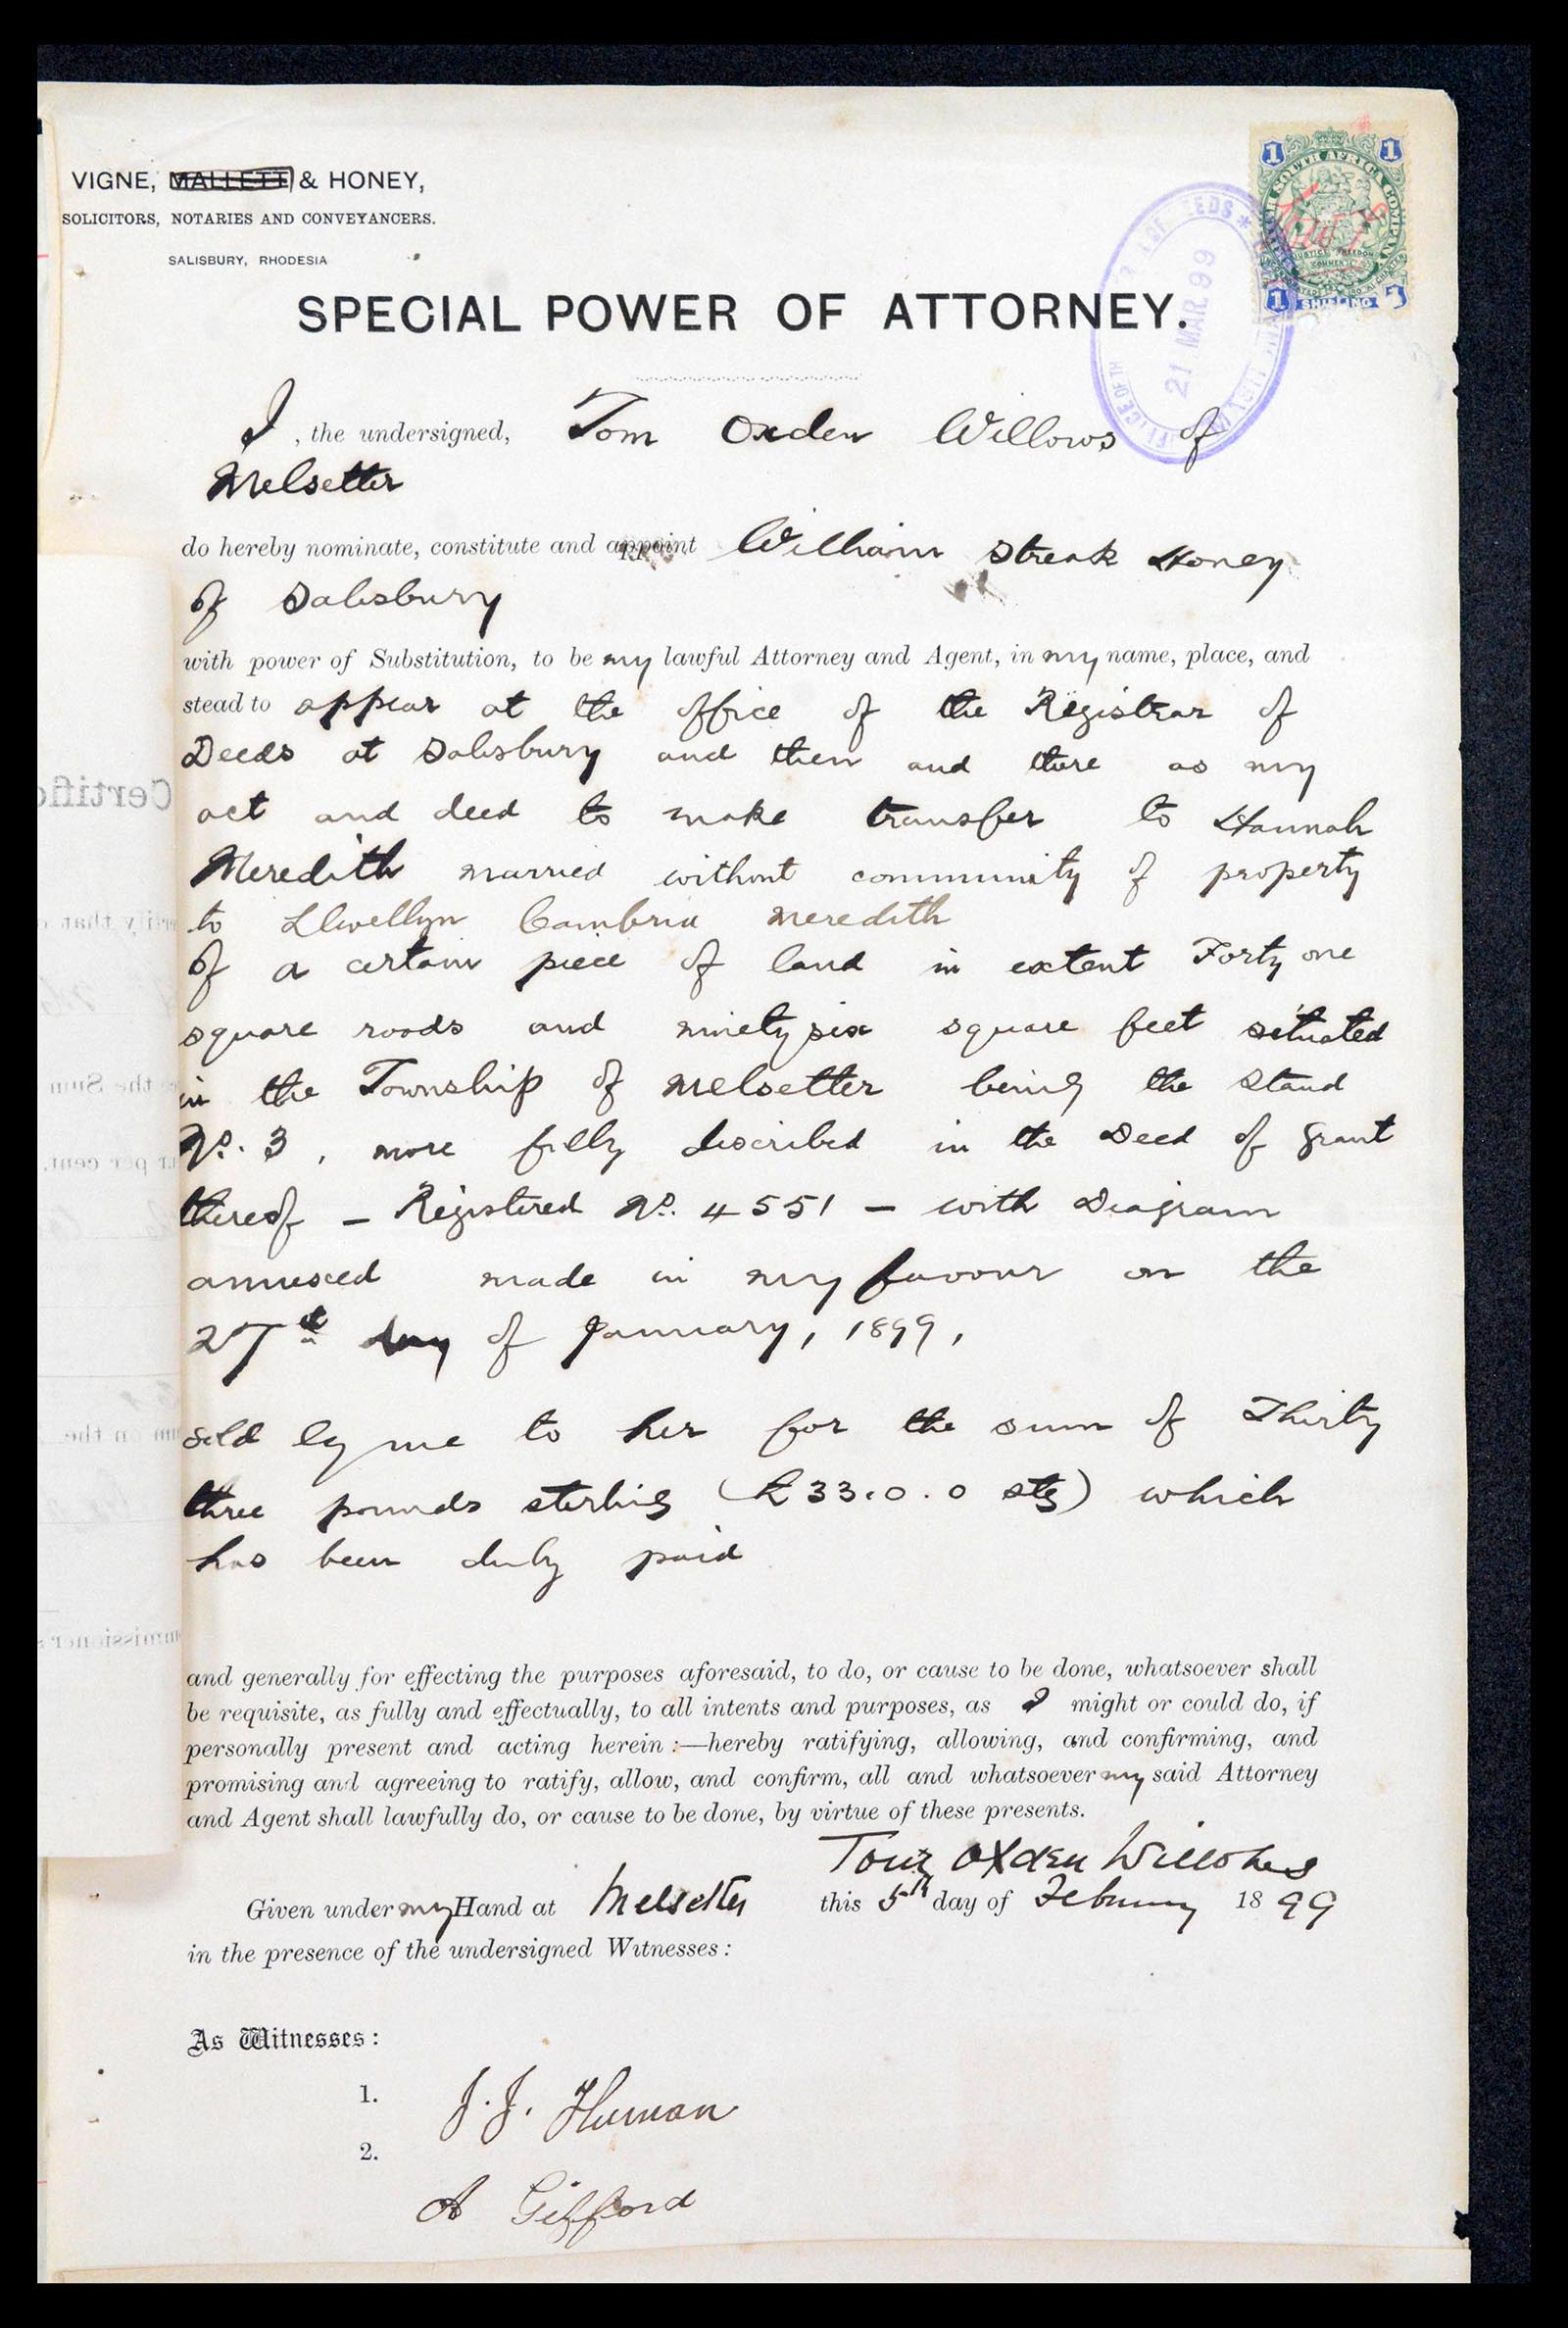 VIGNE, MALLETT & HONEY,
SOLICITORS, NOTARIES AND CONVEYANCERS.
SALISBURY, RHODESIA
1 1
SOUTH AFRICA COMPANY
JUSTICE FREEDOM
COMMERCE
1 SHILLING 1
21 MAR 99
SPECIAL POWER OF ATTORNEY.
I, the undersigned, Tom Oxden Willows of
Melsetter
do hereby nominate, constitute and appoint William Streak Honey
of Salisbury
with power of Substitution, to be my lawful Attorney and Agent, in my name, place, and
stead to appear at the office of the Registrar of
Deeds at Salisbury and then and there as my
act and deed to make transfer to Hannah
Meredith married without community of property
to Llwellyn Cambria Meredith
of a certain piece of land in extent Forty one
square roods and ninety six square feet situated
in the Township of Melsetter being the Stand
No. 3, more fully described in the Deed of Grant
thereof — Registered No. 4551 — with Diagram
annexed made in my favour on the
27th day of January, 1899,
sold by me to her for the sum of Thirty
three pounds sterling (£33.0.0 stg) which
has been duly paid
and generally for effecting the purposes aforesaid, to do, or cause to be done, whatsoever shall
be requisite, as fully and effectually, to all intents and purposes, as I might or could do, if
personally present and acting herein :—hereby ratifying, allowing, and confirming, and
promising and agreeing to ratify, allow, and confirm, all and whatsoever my said Attorney
and Agent shall lawfully do, or cause to be done, by virtue of these presents.
Tom Oxden Willows
Given under my Hand at Melsetter this 5th day of February 1899
in the presence of the undersigned Witnesses :
As Witnesses :
1. J. J. Human
2. A Gifford